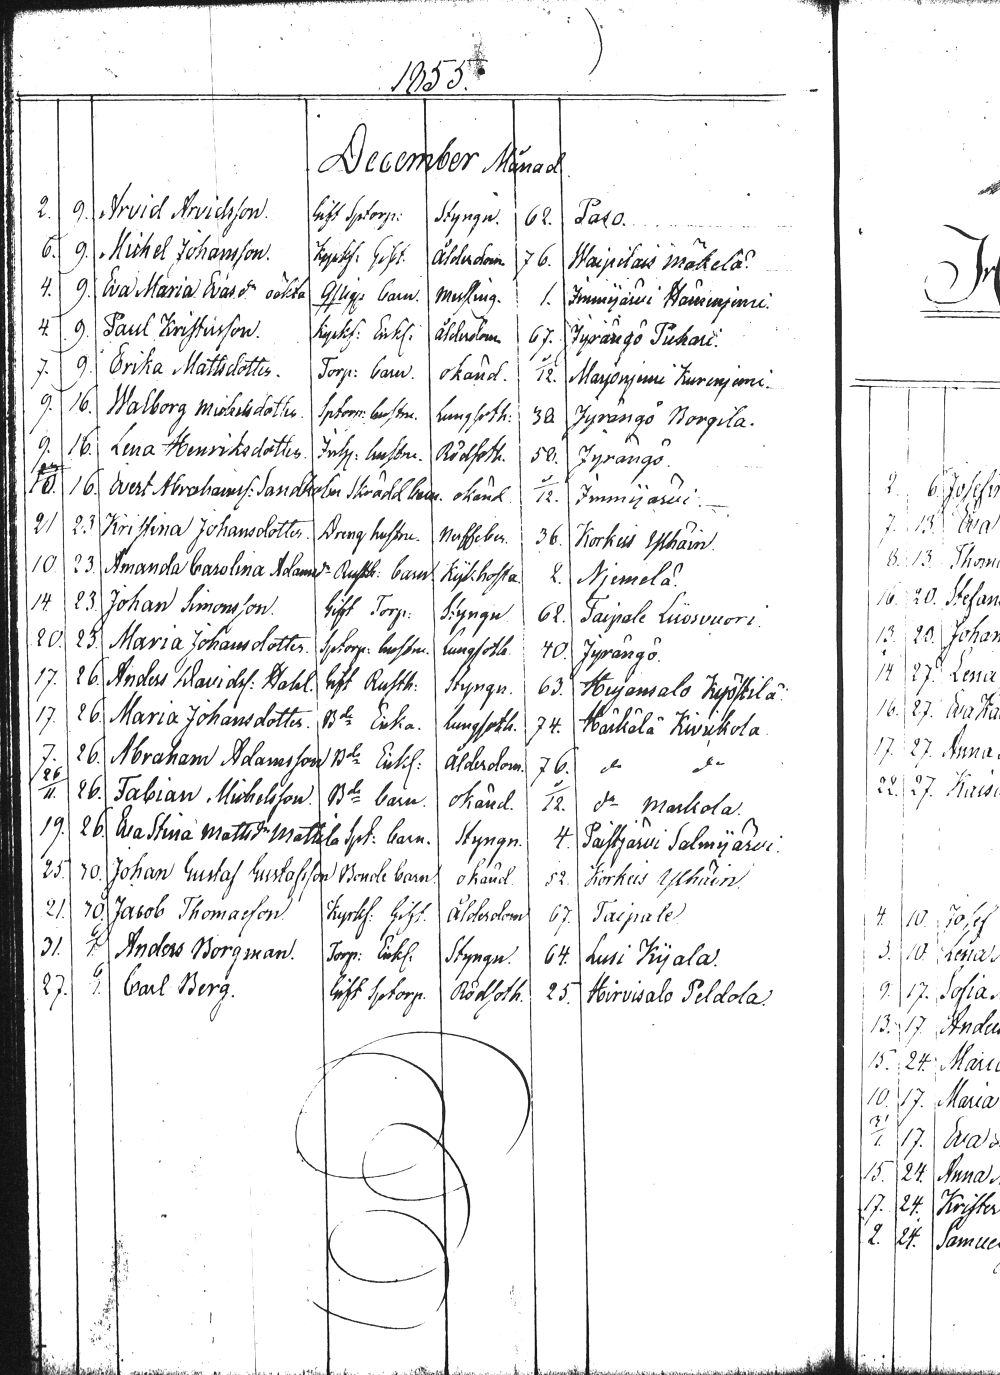 1855.
December Månad
2. 9. Arvid Arvidsson. Gift Sptorp: Styngn. 62. Paso.
6. 9. Michel Johansson. Kyrkh: Gift. Ålderdom 76. Waipilais Mäkelä.
4. 9. Eva Maria Evasdr oäkta barn. Messling. 1. Immijärvi
4 9. Paul Kristersson. Kyrkh: Enkl: ålderdom 67. Jyrängö Puhari.
7. 9. Erika Mattsdotter. Torp: barn. okänd. /12. Marjoniemi Kurenjemi.
9. 16. Walborg Michelsdotter. Sptorp: hustru. Lungsoth: 38 Jyrängö Borgila.
9. 16. Lena Henriksdotter. Inhs: hustru. Rödsoth. 58. Jyrängö.
16. Evert Abrahamss: Sandholm Skrädd barn. okänd /12. Immijärvi
21 23 Kristina Johansdotter. Dreng hustru. 36. Korkeis Ylhäin.
10 23. Amanda Carolina Adamsdr Rusth: barn Kikhosta 2. Njemelä.
14. 23. Johan Simonsson. Gift Torp: Styngn 62. Taipale Liuosvuori.
20. 23. Maria Johansdotter. Sptorp: hustru. Lungsoth 40. Jyrängö.
17. 26. Anders Davids: Hahl. Gift Rusth: Styngn. 63. Heijansalo Kyöstilä.
17. 26. Maria Johansdotter. Bde Enka. Lungsoth. 74. Härkälä Kivikola
7. 26. Abraham Adamsson Bde Enkl: Ålderdom. 76. do do
26/11. 26. Fabian Michelsson. Bde barn. okänd. /12. do Markola.
19. 26. Eva Stina Mattsdr Mattila Spt: barn. Styngn. 4. Paistjärvi Salmijärvi.
25. 30. Johan Gustaf Gustafsson Bonde barn okänd. /52. Korkeis Ylhäin.
21. 30. Jacob Thomasson. Kyrkh: Gift. Ålderdom 67. Taipale
31. 6/1. Anders Borgman. Torp: Enkl. Styngn. 64. Lusi Kijala.
27. 6/1. Carl Berg. Gift Sptorp. Rödsoth. 25. Hirvisalo Peldola.
2. 6
7. 13. Eva
8. 13. Thom
16. 20. Stefan
13. 20. Johan
14 27. Lena
16. 27. Eva Ka
17. 27. Anna
22. 27. Kaisa
4. 10. Josef
3. 10. Lena
9. 17. Sofia
13. 17. Ander
15. 24. Mari
10. 17. Maria
31/1. 17. Eva
15. 24. Anna
17. 24. Krister
2. 24. Samuel